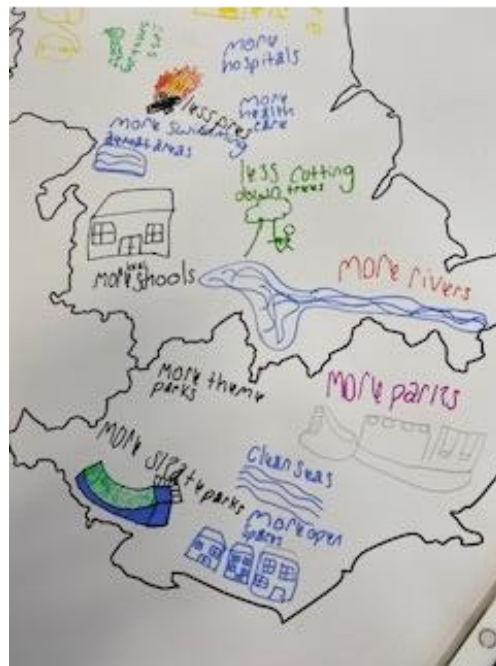 more
hospitals
less fires
more
health
care
more swimming
areas
less cutting
down trees
more local schools
more rivers
more theme
parks
more parks
more skate parks
clean seas
more open
parks